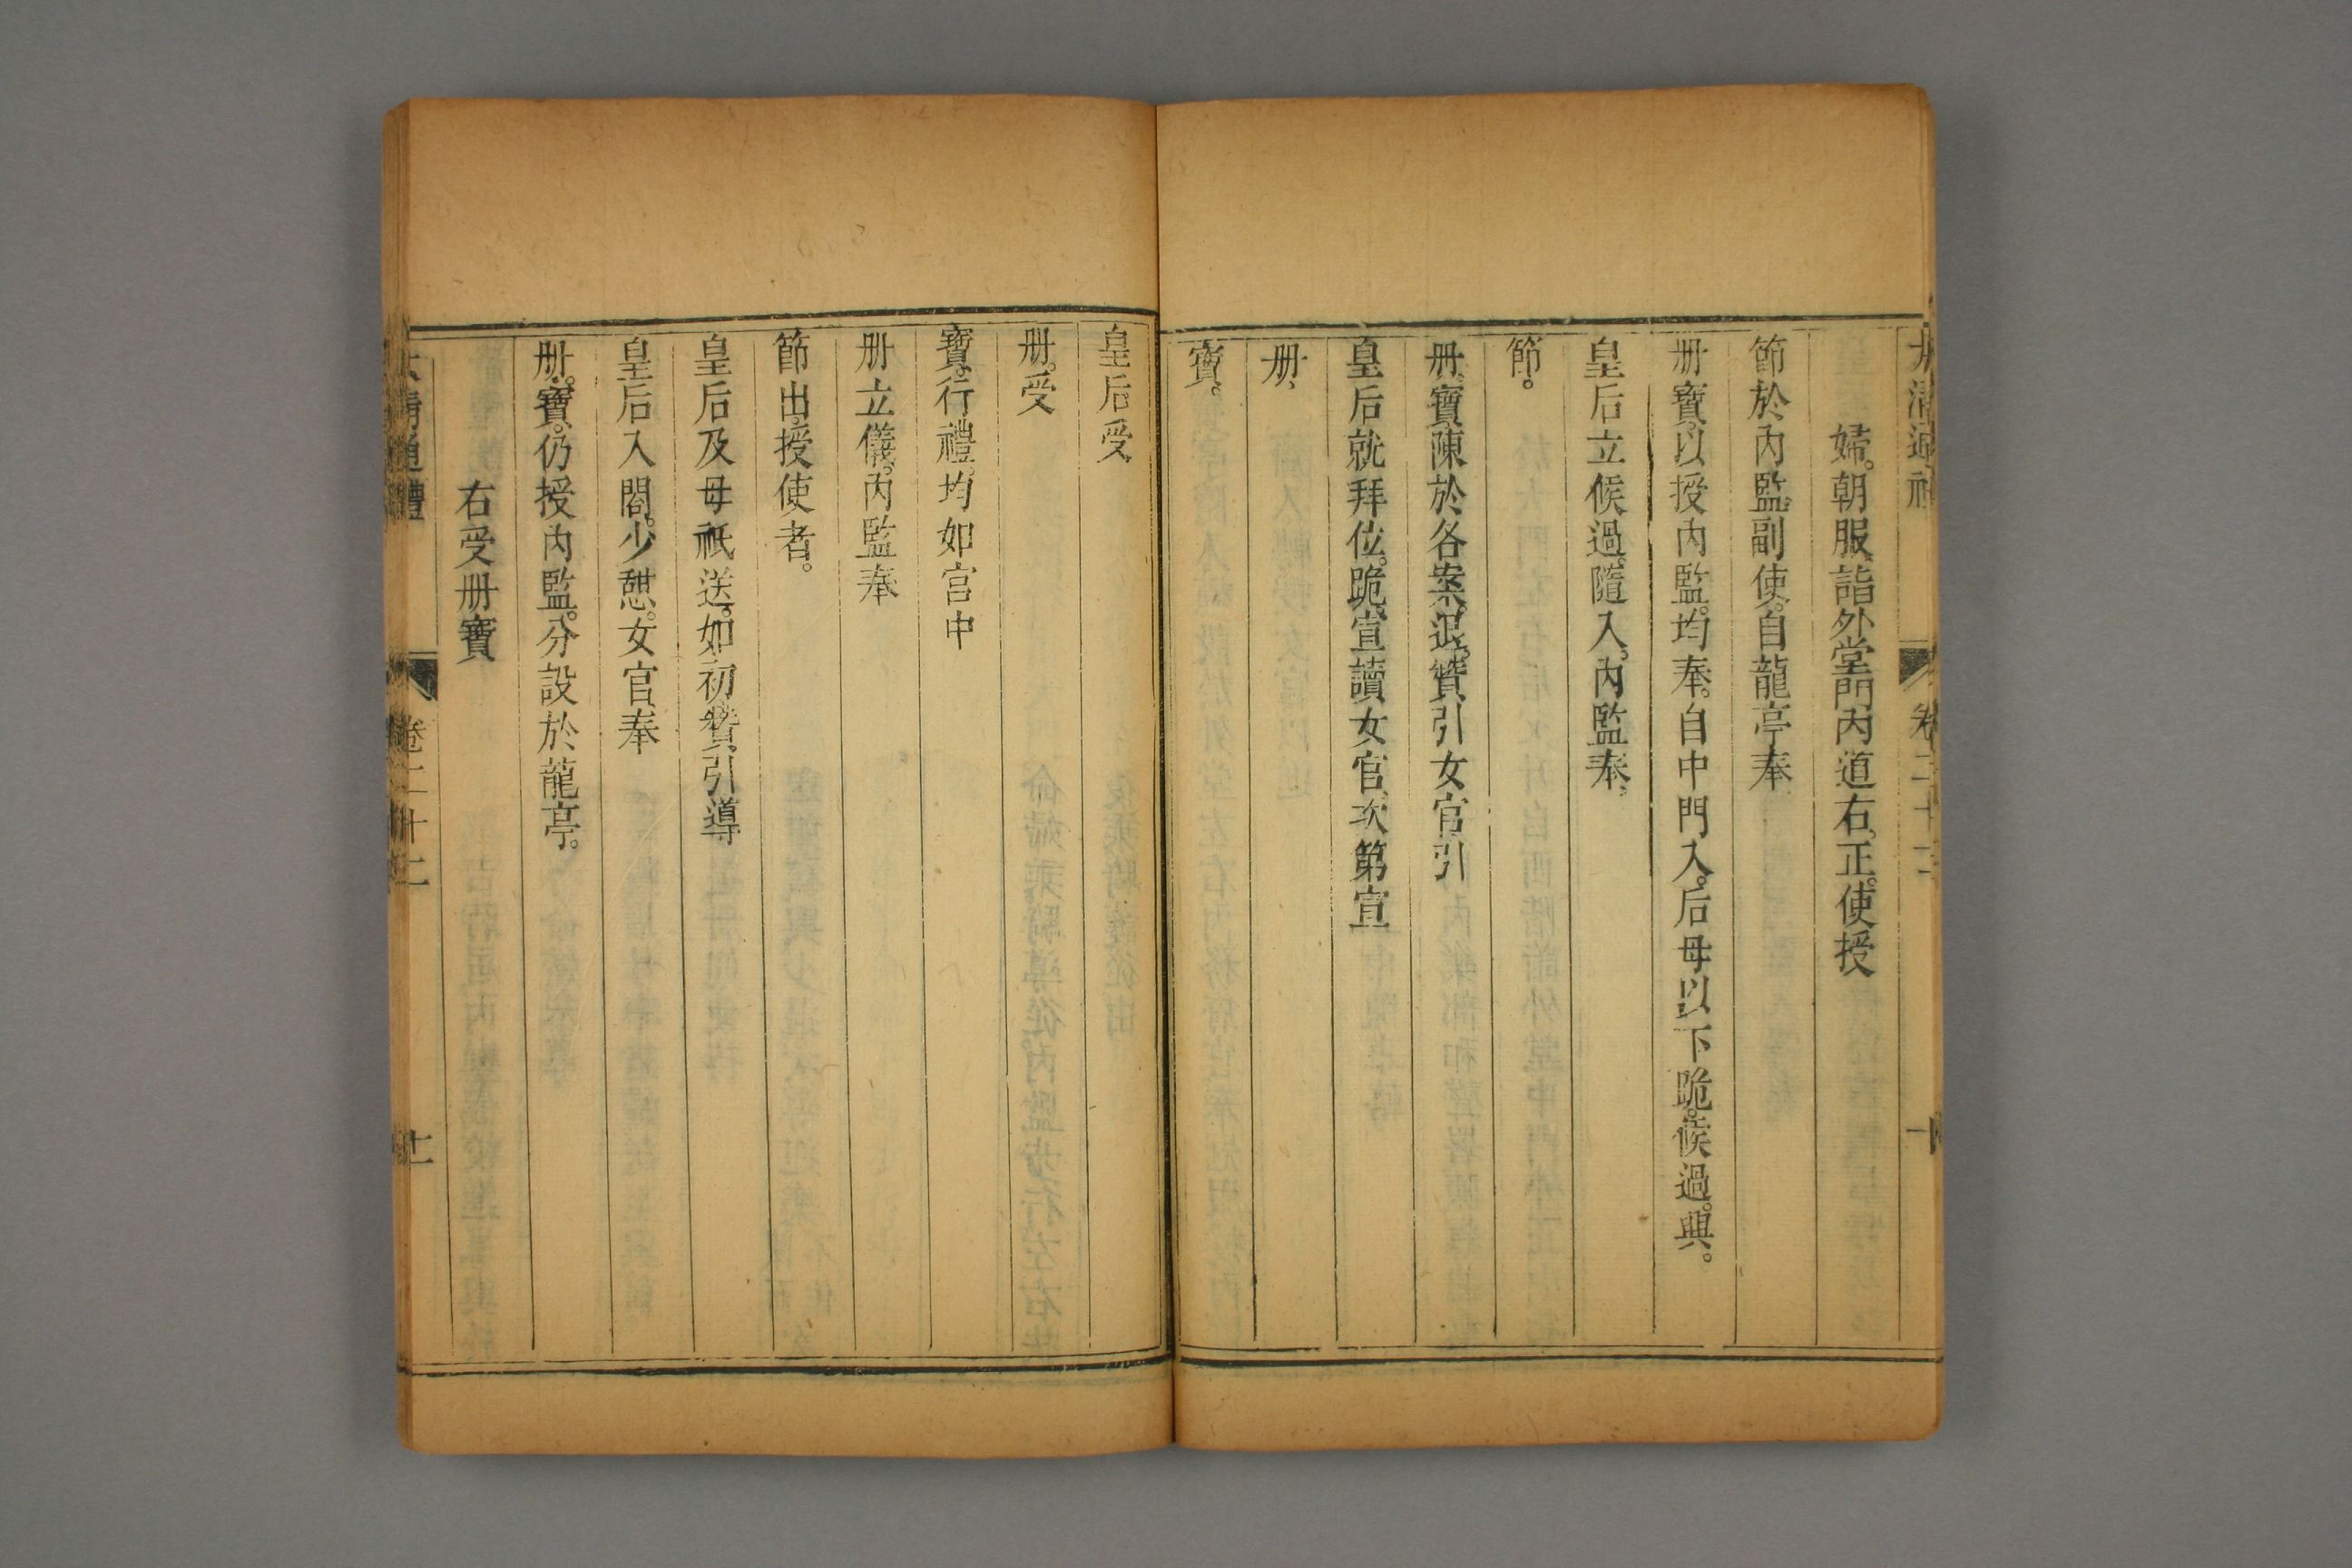 大清通禮
卷二十二
婦。朝服。詣外堂門內道右。正使授
節於內監。副使。自龍亭奉
册寶。以授內監。均奉。自中門入。后母以下跪。候過。興。
皇后立候過。隨入。內監奉。
節。
册。寶。陳於各案。退。贊引女官引
皇后就拜位。跪。宣讀女官。次第宣
册、
寶。
皇后受
册。受
寶。行禮。均如宮中
册立儀。內監奉
節出。授使者。
皇后及母祇送。如初。贊引導
皇后入閤。少憩。女官奉
册。寶。仍授內監。分設於龍亭。
右受册寶
大清通禮
卷二十二
十一